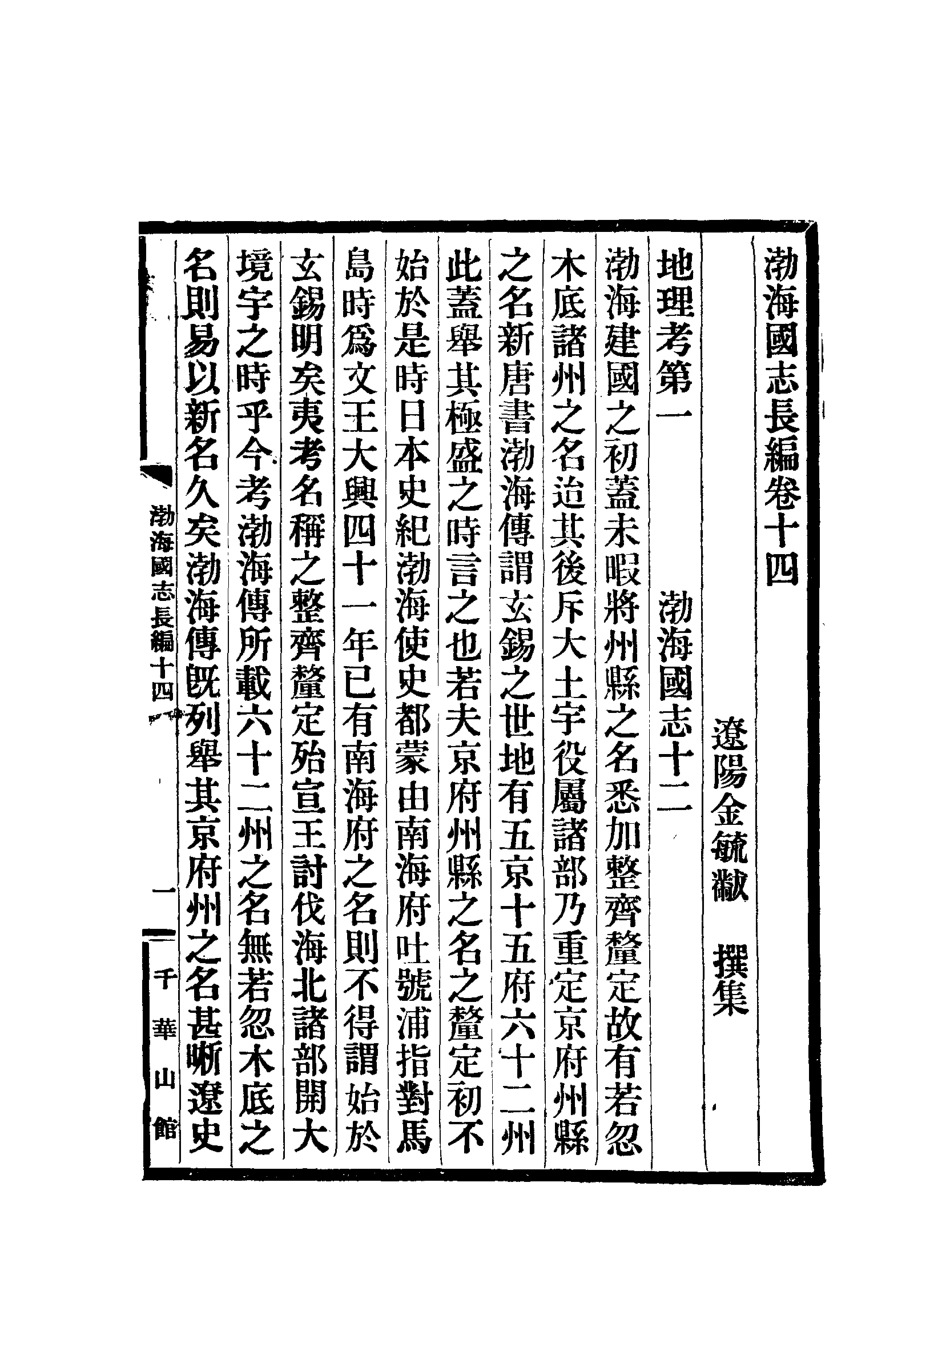 渤海國志長編卷十四
遼陽金毓黻　撰集
地理考第一　　　渤海國志十二
渤海建國之初蓋未暇將州縣之名悉加整齊釐定故有若忽
木底諸州之名迨其後斥大土宇役屬諸部乃重定京府州縣
之名新唐書渤海傳謂玄錫之世地有五京十五府六十二州
此蓋舉其極盛之時言之也若夫京府州縣之名之釐定初不
始於是時日本史紀渤海使史都蒙由南海府吐號浦指對馬
島時爲文王大興四十一年已有南海府之名則不得謂始於
玄錫明矣夷考名稱之整齊釐定殆宣王討伐海北諸部開大
境宇之時乎今考渤海傳所載六十二州之名無若忽木底之
名則易以新名久矣渤海傳旣列舉其京府州之名甚晰遼史
渤海國志長編十四
一
千華山館